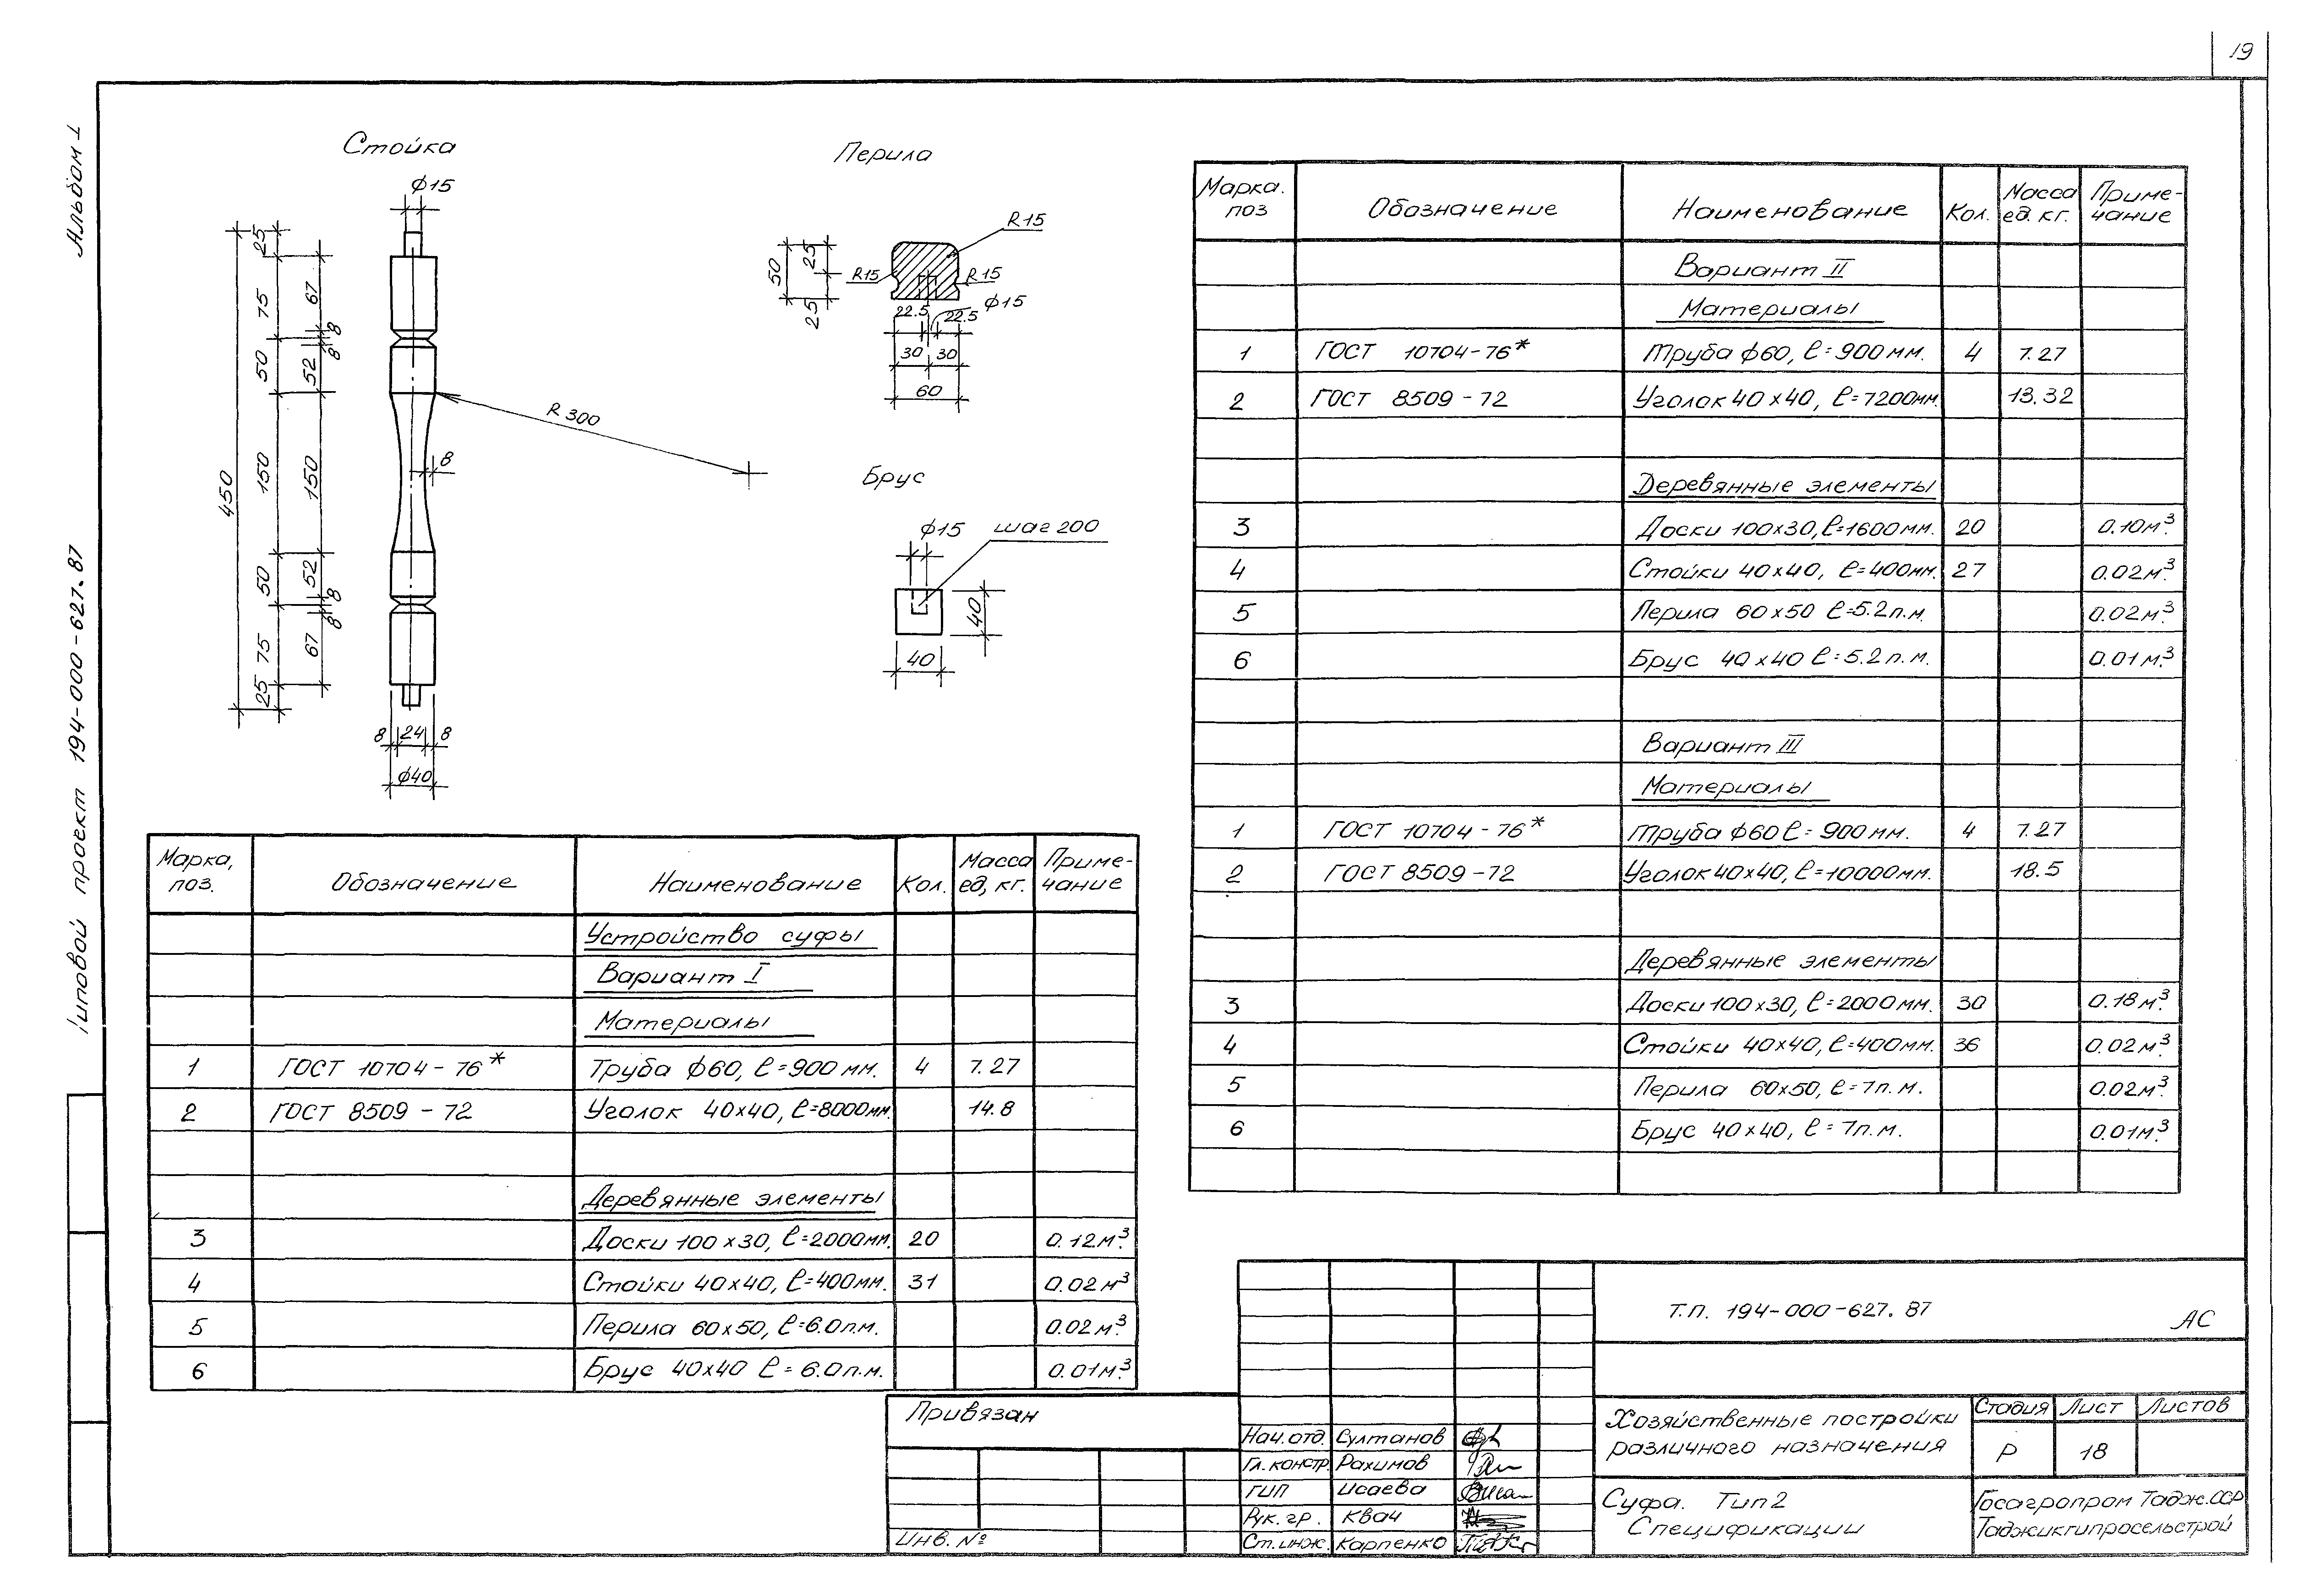 19
Альбом I
Типовой проект 194-000-627.87
Стойка
ф15
25
75
50
150
50
75
25
450
67
8
8
52
150
52
8
8
67
R 300
8
8 24 8
ф40
Перила
R15
R15
R15
50
25
25
ф15
22.5 22.5
30 30
60
Брус
ф15 шаг 200
40
40
Марка, поз. Обозначение Наименование Кол. Масса ед, кг. Примечание
Устройство суфы
Вариант I
Материалы
1 ГОСТ 10704-76* Труба ф60, ℓ=900 мм. 4 7.27
2 ГОСТ 8509-72 Уголок 40х40, ℓ=8000мм. 14.8
Деревянные элементы
3 Доски 100х30, ℓ=2000мм. 20 0.12м³.
4 Стойки 40х40, ℓ=400мм. 31 0.02м³
5 Перила 60х50, ℓ=6.0п.м. 0.02м³.
6 Брус 40х40 ℓ=6.0п.м. 0.01м³.
Марка. поз Обозначение Наименование Кол. Масса ед. кг. Примечание
Вариант II
Материалы
1 ГОСТ 10704-76* Труба ф60, ℓ=900мм. 4 7.27
2 ГОСТ 8509-72 Уголок 40х40, ℓ=7200мм. 13.32
Деревянные элементы
3 Доски 100х30, ℓ=1600мм. 20 0.10м³.
4 Стойки 40х40, ℓ=400мм. 27 0.02м³.
5 Перила 60х50 ℓ=5.2п.м. 0.02м³.
6 Брус 40х40 ℓ=5.2п.м. 0.01м³.
Вариант III
Материалы
1 ГОСТ 10704-76* Труба ф60 ℓ=900мм. 4 7.27
2 ГОСТ 8509-72 Уголок 40х40, ℓ=10000мм. 18.5
Деревянные элементы
3 Доски 100х30, ℓ=2000мм. 30 0.18м³.
4 Стойки 40х40, ℓ=400мм. 36 0.02м³.
5 Перила 60х50, ℓ=7п.м. 0.02м³.
6 Брус 40х40, ℓ=7п.м. 0.01м³.
Привязан
Инв. №
Нач. отд. Султанов
Гл. констр. Рахимов
ГИП Исаева
Рук. гр. Квач
Ст. инж. Карпенко
Т.п. 194-000-627.87 АС
Хозяйственные постройки
различного назначения
Стадия Лист Листов
Р 18
Суфа. Тип 2
Спецификации
Госагропром Тадж.ССР
Таджикгипросельстрой